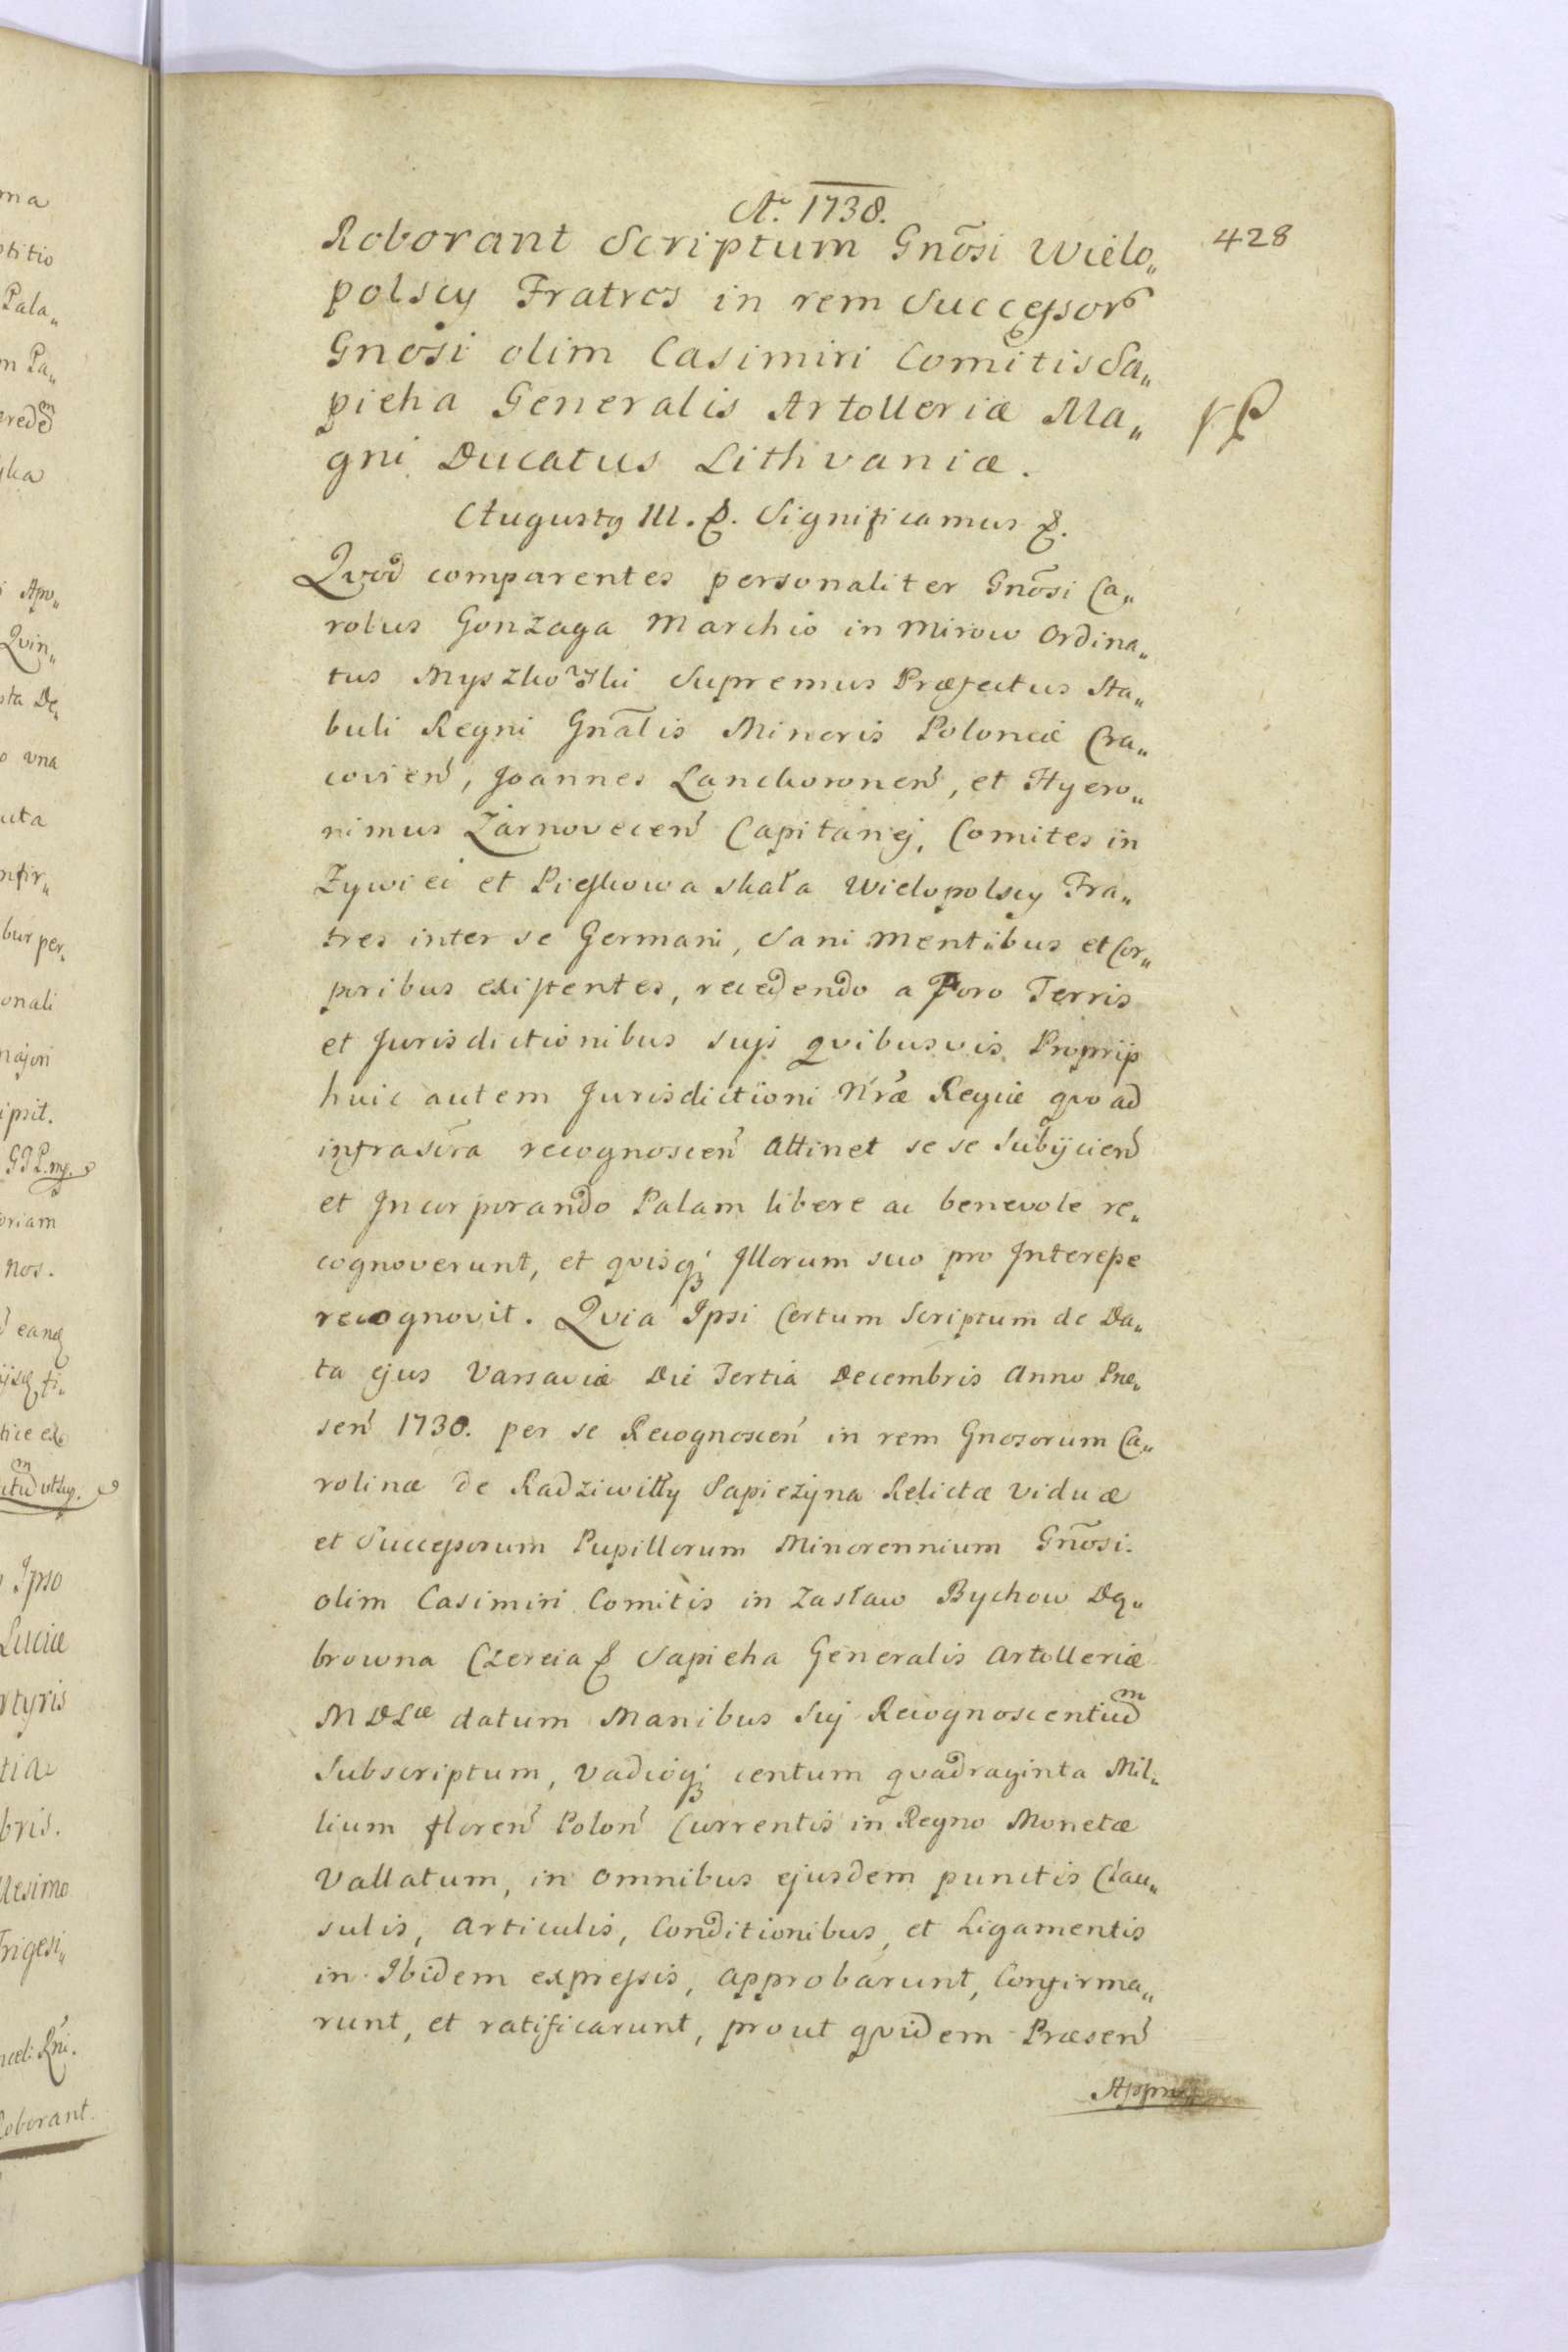 A͞o. 1738.
428
Roborant Scriptum Gnõsi Wielo„
polscy Fratres in rem Successor
Gnosi olim Casimiri Comitis Sa„
pieha Generalis Artolleriæ Ma„
gni Ducatus Lithvaniæ.
Augustg III. &. Significamus &.
Qvod comparentes personaliter Gnõsi Ca„
rolus Gonzaga Marchio in Mirow Ordina„
tus Myszkowski Supremus Præfectus Sta„
buli Regni Gnãlis Minoris Poloniæ Cra„
covien, Joannes Lanckoronen, et Hyero„
nimus Żarnovecen Capitanej, Comites in
Zywiec et Pieskowa skała Wielopolscy Fra„
tres inter se Germani, Sani Mentibus et Cor„
poribus existentes, recedendo a Foro Terris
et Jurisdictionibus suys qvibusvis Proprys
huic autem Jurisdictioni Nræ Regiæ qvo ad
infrascra recognoscen Attinet se se Subijcien
et Incorporando Palam libere ac benevole re„
cognoverunt, et qvisq; Illorum suo pro Interesse
recognovit. Qvia Ipsi Certum Scriptum de Da„
ta ejus Varsaviæ Die Tertia Decembris Anno Præ„
sen 1738. per se Recognoscen in rem Gnosorum Ca„
rolinæ de Radziwiłły Sapiezyna Relictæ Viduæ
et Successorum Pupillorum Minorennium Gnõsi
olim Casimiri Comitis in Zasław Bychow Dą„
browna Czereia & Sapieha Generalis Artolleriæ
MDLæ datum Manibus Suj Recognoscentium
Subscriptum, Vadioq; centum qvadraginta Mil„
lium floren Polon Currentis in Regno Monetæ
Vallatum, in Omnibus ejusdem punctis Clau„
sulis, Articulis, Conditionibus, et Ligamentis
in Ibidem expressis, Approbarunt, Confirma„
runt, et ratificarunt, prout qvidem Præsen